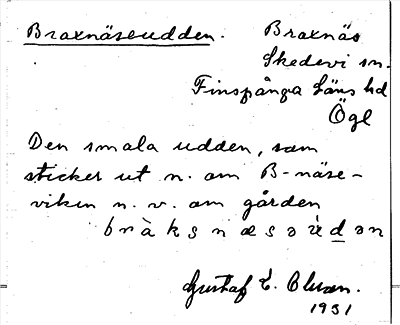 Braxnäseudden. Braxnäs
Skedevi sn.
Finspånga Läns hd
Ögl
Den smala udden, som
sticker ut n. om B-näse-
viken n. v. om gården
bràksnæsəùdən
Gustaf E. Olsson.
1931